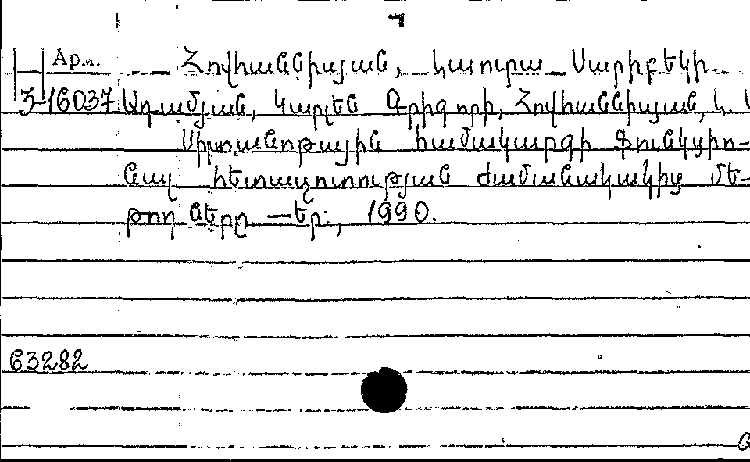 Арм. Հովհաննիսյան, Լաուրա Սարիբեկի
3-16037 Ադամյան, Կարլեն Գրիգորի, Հովհաննիսյան, Լ.
Սիրտանոթային համակարգի ֆունկցիո-
նալ հետազոտության ժամանակակից մե-
թոդները —Եր., 1990.
63282